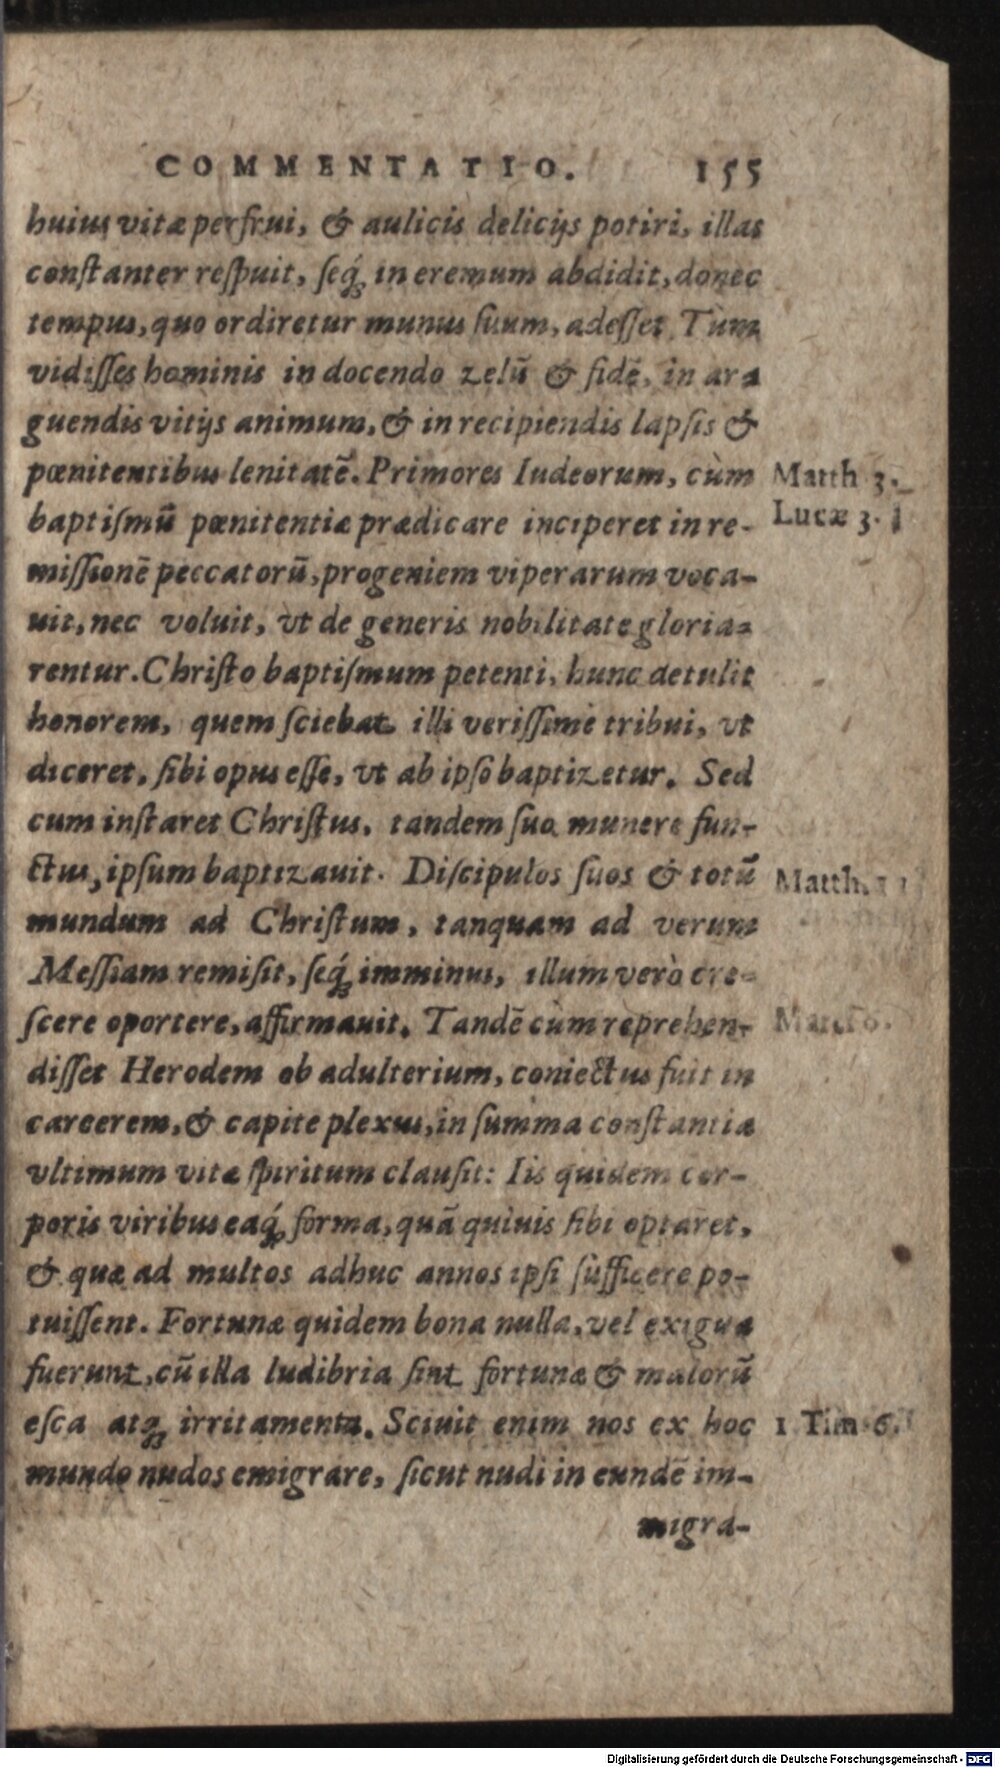 COMMENTATIO. 155
huius vitæ perfrui, & aulicis delicijs potiri, illas
constanter respuit, seq́; in eremum abdidit, donec
tempus, quo ordiretur munus suum, adesset Tum
vidisses hominis in docendo zelū & fidē, in ar=
guendis vitijs animum, & in recipiendis lapsis &
pœnitentibus lenitatē. Primores Iudeorum, cùm
Matth 3.
baptismū pœnitentiæ prædicare inciperet in re-
Lucæ 3.
missionē peccatorū, progeniem viperarum voca-
uit, nec voluit, vt de generis nobilitate gloria=
rentur. Christo baptismum petenti, hunc detulit
honorem, quem sciebat illi verissimè tribui, vt
diceret, sibi opus esse, vt ab ipso baptizetur. Sed
cum instaret Christus, tandem suo munere fun-
ctus, ipsum baptizauit. Discipulos suos & totū
Matth. 11
mundum ad Christum, tanquam ad verum
Messiam remisit, seq́; imminui, illum verò cre=
scere oportere, affirmauit. Tandē cùm reprehen-
disset Herodem ob adulterium, coniectus fuit in
carcerem, & capite plexus, in summa constantia
vltimum vitæ spiritum clausit: Iis quidem cor-
poris viribus eaq́; forma, quā quiuis sibi optaret,
& quæ ad multos adhuc annos ipsi sufficere po-
tuissent. Fortunæ quidem bona nulla, vel exigua
fuerunt, cū illa ludibria sint fortunæ & malorū
esca atq; irritamenta. Sciuit enim nos ex hoc
1 Tim 6.
mundo nudos emigrare, sicut nudi in eundē im-
migra-
Digitalisierung gefördert durch die Deutsche Forschungsgemeinschaft - DFG